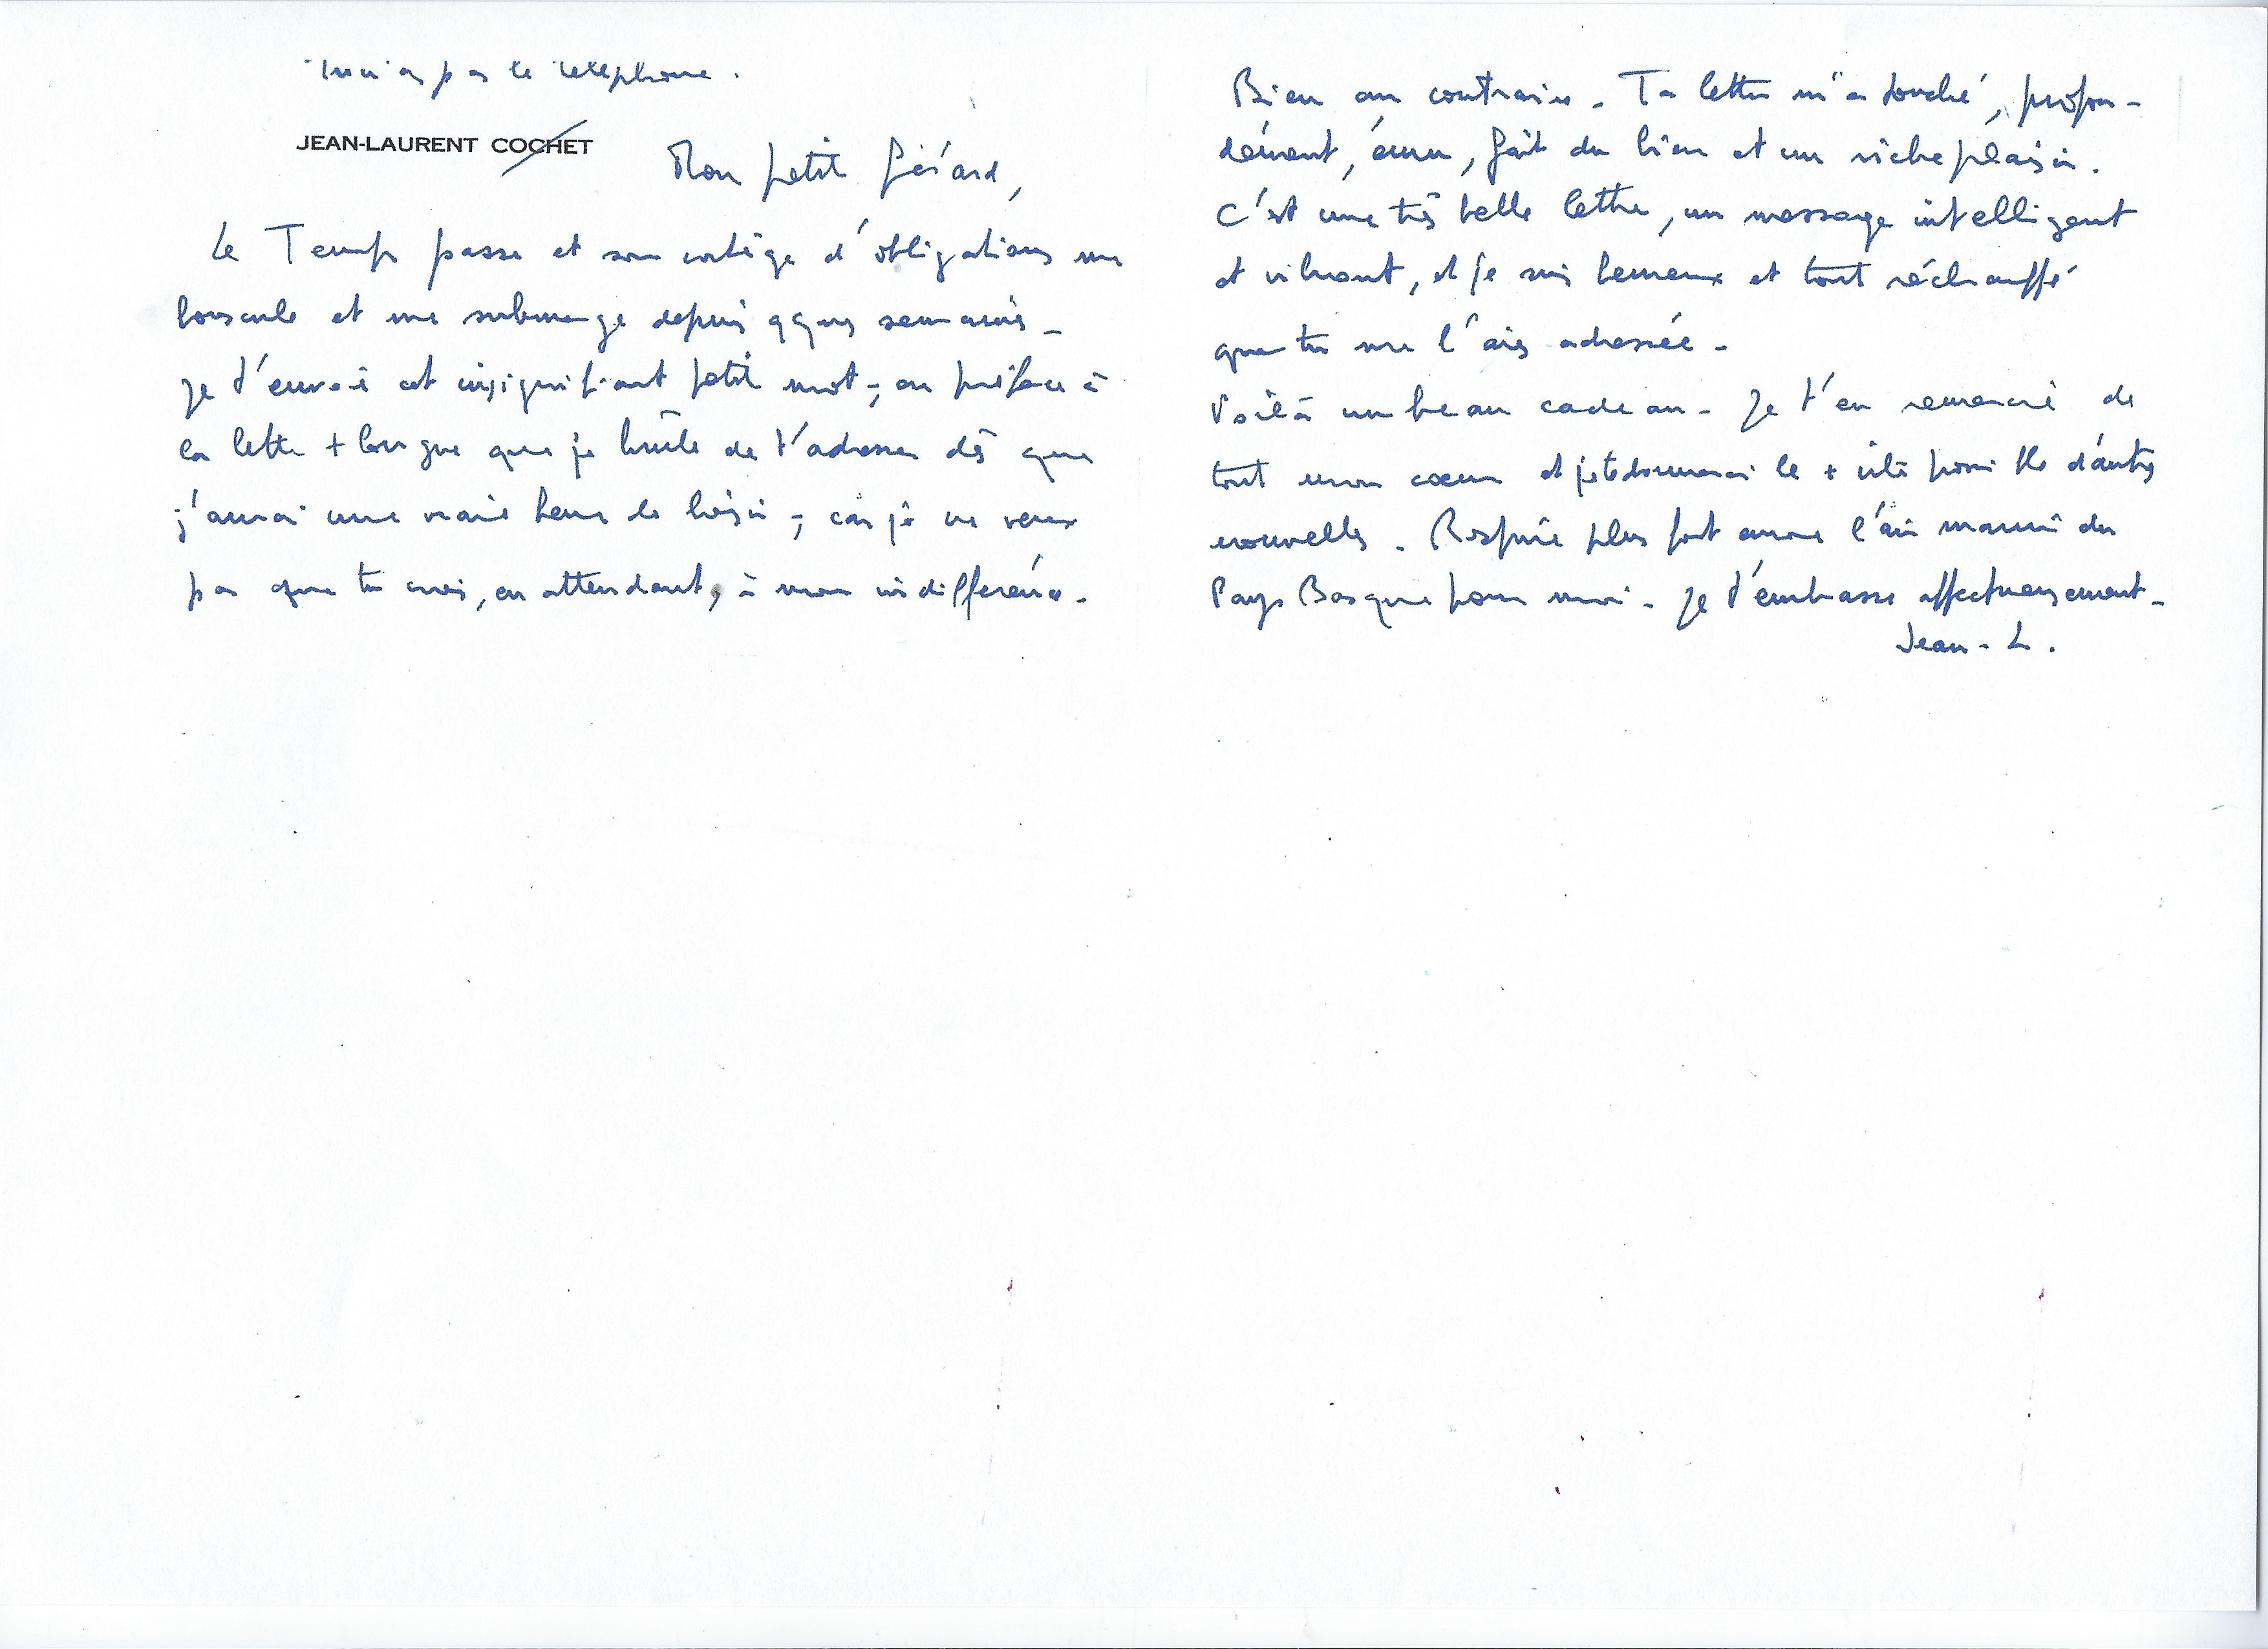 Tu n'as pas le téléphone.
JEAN-LAURENT COCHET
Mon petit Gérard,
Le Temps passe et son cortège d'obligations me
bouscule et me submerge depuis qques semaines -
Je t'envoie cet insignifiant petit mot, en préface à
la lettre + longue que je brûle de t'adresser dès que
j'aurai une vraie heure de loisir ; car je ne veux
pas que tu croies, en attendant, à mon indifférence.
Bien au contraire. Ta lettre m'a touché, profon-
dément, ému, fait du bien et un riche plaisir.
C'est une très belle lettre, un message intelligent
et vibrant, et je suis heureux et tout réchauffé
que tu me l'aies adressée -
Voilà un beau cadeau - Je t'en remercie de
tout mon cœur et je te donnerai le + vite possible d'autres
nouvelles. Respire plus fort encore l'air marin du
Pays Basque pour moi - Je t'embrasse affectueusement -
Jean - L.